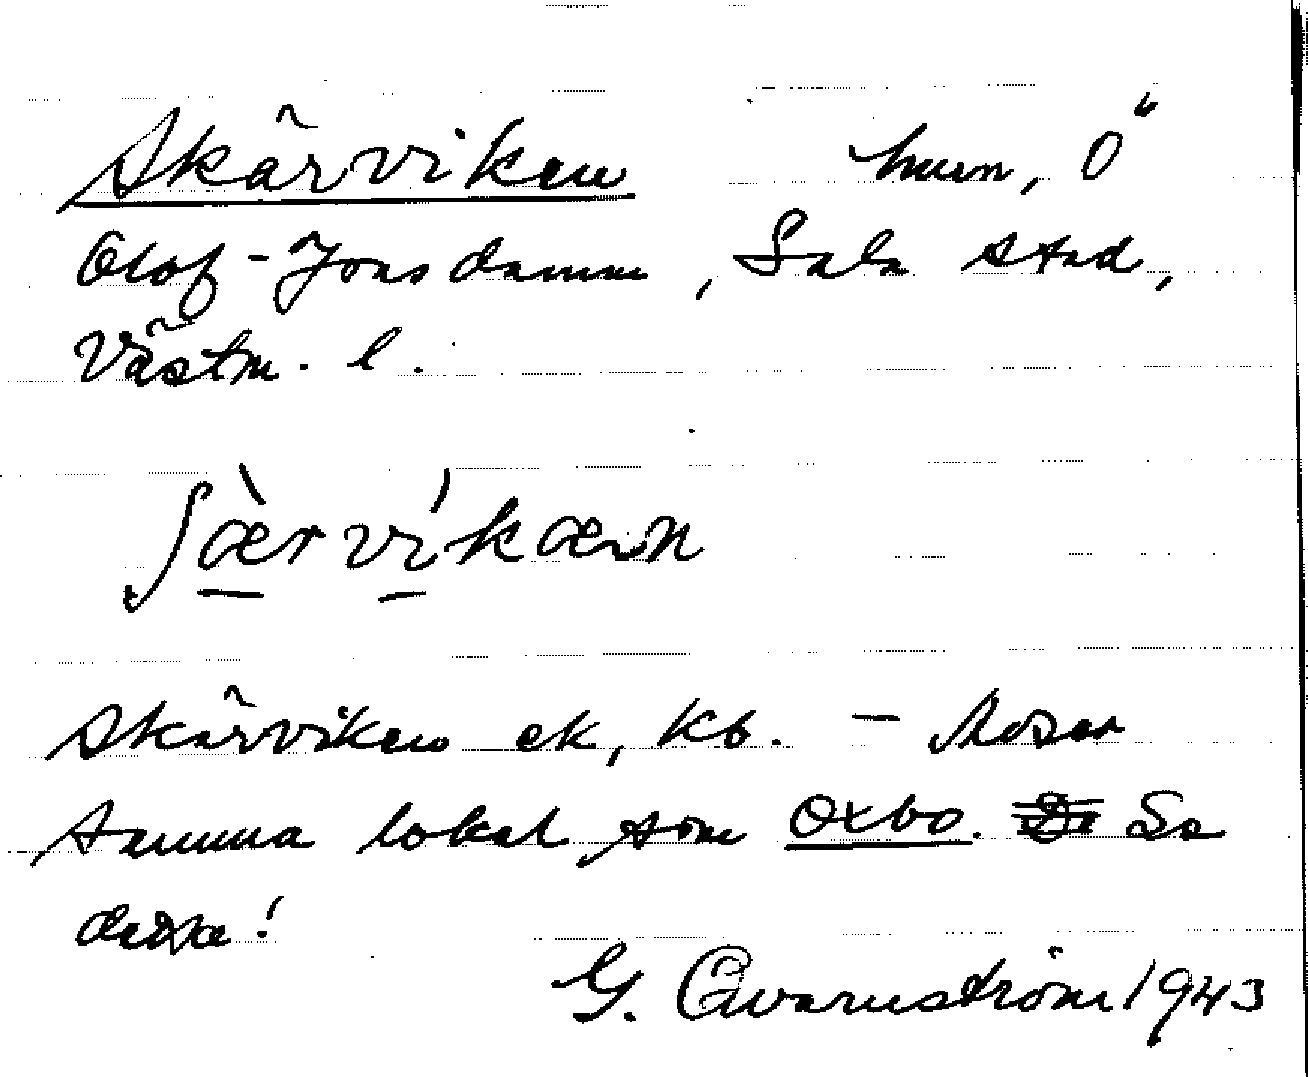 Skärviken hem, Ö
Olof-Jons damm, Sala stad,
Västm. l.
ʃæ̀rvíkæn
Skärviken ek, kb. – Avser
samma lokal som Oxbo. Se
detta!
G. Qvarnström 1943